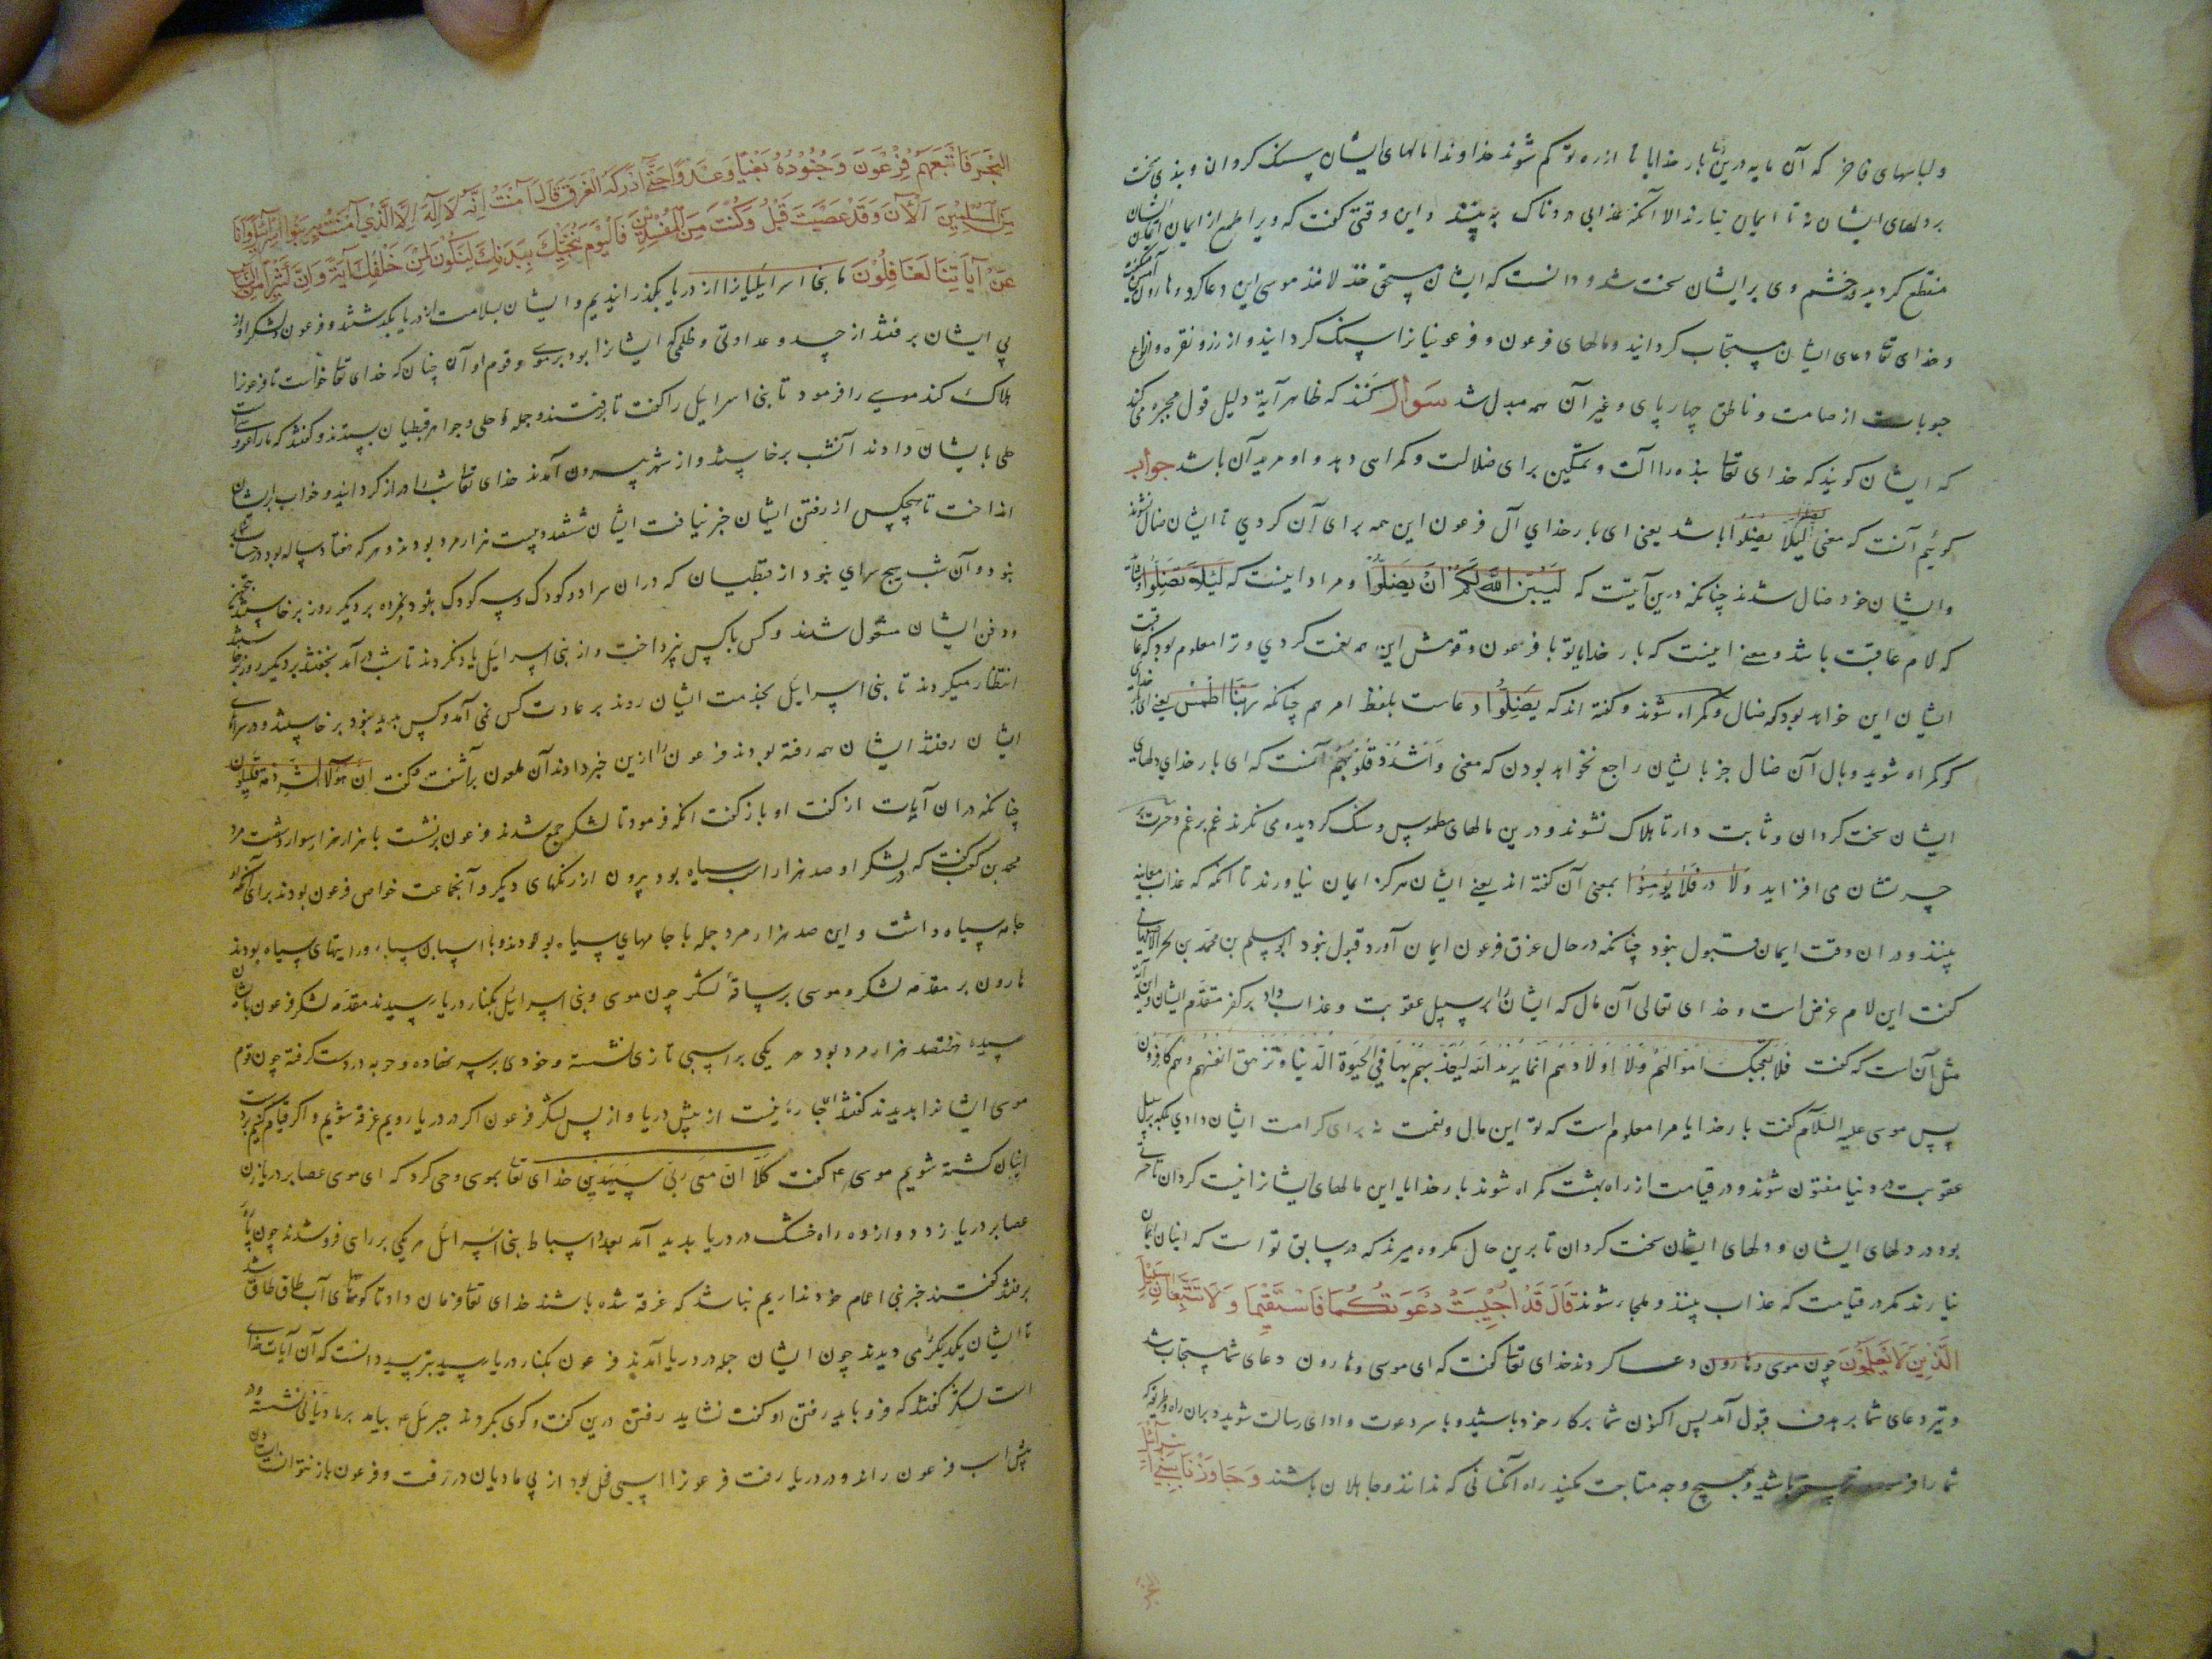 ولباسهای فاخر که آن مایه درین بار خدایا تا از ره تو کم شوند خداوندا مالهای ایشان سنک کردان وبند سخت
بر دلهای ایشان نه تا ایمان نیارند الا آنکه عذابی دردناک به بینند واین وقتی کفت که ویرا طمع از ایمان ایشان
منقطع کردید وخشم وی بر ایشان سخت شد ودانست که ایشان مستحق خذلانند موسی این دعا کرد وهارون آمین
وخدای تعا دعای ایشان مستجاب کردانید ومالهای فرعون وفرعونیانرا سنک کردانید واز زر ونقره وانواع
حبوبات از صامت وناطق چهارپای وغیر آن همه مبدل شد سوال کنند که ظاهر آیة دلیل قول مجبره می کند
که ایشان کویند که خدای تعا بنده را آلت وتمکین برای ضلالت وکمراهی دهد واو مرید آن باشد جواب
کوئیم آنست که معنی لئلا یضلوا باشد یعنی ای بار خدای آل فرعون این همه برای آن کردی تا ایشان ضال نشوند
وایشان خود ضال شدند چنانکه درین آیتست که لیبین الله لکم ان یضلوا ومراد اینست که لئلا تضلوا
که لام عاقبت باشد ومعنی اینست که بار خدایا تو با فرعون وقومش این همه نعمت کردی وترا معلوم بود که عاقبت
ایشان این خواهد بود که ضال وکمراه شوند وکفته اند که یضلوا دعاست بلفظ امر هم چنانکه ربنا اطمس یعنی ای بار خدای
کو کمراه شوید ووبال آن ضال جز بایشان راجع نخواهد بودن که معنی واشدد قلوبهم آنست که ای بار خدای دلهای
ایشان سخت کردان وثابت دار تا هلاک نشوند ودرین مالهای مطموس وسنک کردیده می نکرند غم بر غم وحسرت بر
حسرتشان می افزاید ولا در فلا یؤمنوا بمعنی آن کفته اند یعنی ایشان هرکز ایمان نیاورند تا آنکه که عذاب معاینه
بینند ودران وقت ایمان مقبول نبود چنانکه در حال غرق فرعون ایمان آورد قبول نبود ابو مسلم بن محمد بن بحر الاصفهانی
کفت این لام غرض است وخدای تعالی آن مال که ایشانرا بر سبیل عقوبت وعذاب داد بر کفر متقدم ایشان واین آیة
مثل آن است که کفت فلا تعجبک اموالهم ولا اولادهم انما یرید الله لیعذبهم بها فی الحیوة الدنیا وتزهق انفسهم وهم کافرون
پس موسی علیه السلام کفت بار خدایا مرا معلوم است که تو این مال ونعمت نه برای کرامت ایشان دادی بلکه بر سبیل
عقوبت در دنیا مفتون شوند ودر قیامت از راه بهشت کمراه شوند بار خدایا این مالهای ایشانرا نیست کردان تا حسرتی
بود در دلهای ایشان ودلهای ایشان سخت کردان تا برین حال مکروه میرند که در سابق تو است که اینان ایمان
نیارند مکر در قیامت که عذاب بینند وملجا شوند قال قد اجیبت دعوتکما فاستقیما ولا تتبعان سبیل
الذین لا یعلمون چون موسی وهارون دعا کردند خدای تعا کفت که ای موسی وهارون دعای شما مستجاب شد
وتیر دعای شما بر هدف قبول آمد پس اکنون شما بر کار خود باشید وبا سر دعوت وادای رسالت شوید وبران راه وطریقه که
شما را باشید وبهیچ وجه متابعت مکنید راه آنکسانی که ندانند وجاهلان باشند وجاوزنا ببنی اسرائیل
البحر
البحر فاتبعهم فرعون وجنوده بغیا وعدوا حتی اذا ادرکه الغرق قال آمنت انه لا اله الا الذی آمنت به بنوا اسرائیل وانا
من المسلمین آلآن وقد عصیت قبل وکنت من المفسدین فالیوم ننجیک ببدنک لتکون لمن خلفک آیة وان کثیرا من الناس
عن آیاتنا لغافلون ما بنی اسرائیلیانرا از دریا بکذرانیدیم وایشان بسلامت از دریا بکذشتند وفرعون ولشکر او از
پی ایشان برفتند از حسد وعداوتی وظلمی که ایشانرا بود بر موسی وقوم او آن چنان که خدای تعا خواست تا فرعونرا
هلاک کند موسی را فرمود تا بنی اسرائیل را کفت تا برفتند وجمله حلی وجواهر قبطیان بستدند وکفتند که ما را عروسی است
حلی بایشان دادند آنشب برخاستند واز شهر بیرون آمدند خدای تعا شب را دراز کردانید وخواب بر ایشان
انداخت تا هیچکس از رفتن ایشان خبر نیافت ایشان ششصد وبیست هزار مرد بودند وهرکه هفتاد ساله بود در حساب
نبود وآن شب هیچ سرای نبود از قبطیان که دران سرا دو کودک وسه کودک بنمرده بود دیکر روز برخاستند بتجهیز
ودفن ایشان مشغول شدند وکس باکس نپرداخت واز بنی اسرائیل یاد نکردند تا شب درآمد بخفتند بر دیکر روز برخاستند
انتظار میکردند تا بنی اسرائیل بخدمت ایشان روند بر عادت کس نمی آمد وکس پدید نبود برخاستند ودر سرای
ایشان رفتند ایشان همه رفته بودند فرعون را ازین خبر دادند آن ملعون برآشفت وکفت ان هؤلاء لشرذمة قلیلون
چنانکه دران آیات از کفت او باز کفت آنکه فرمود تا لشکر جمع شدند فرعون برنشست با هزار هزار سوار وشصت مرد
محمد بن کعب کفت که در لشکر او صد هزار اسب سیاه بود بیرون از رنکهای دیکر وآنجماعت خواص فرعون بودند برای آنکه او
جامه سیاه داشت واین صد هزار مرد جمله با جامهای سیاه بودند وبا اسبان سیاه ورایتهای سیاه بودند
هارون بر مقدمه لشکر وموسی بر ساقهٔ لشکر چون موسی وبنی اسرائیل بکنار دریا رسیدند مقدمه لشکر فرعون بایشان
رسیده هفتصد هزار مرد بود هر یکی بر اسبی تازی نشسته وخودی بر سر نهاده وحربه در دست کرفته چون قوم
موسی ایشانرا بدیدند کفتند از پیش دریا واز پس لشکر فرعون اکر در دریا رویم غرقه شویم واکر قیام کنیم بر دست
اینان کشته شویم موسی ع کفت کلا ان معی ربی سیهدین خدای تعا بموسی وحی کرد که ای موسی عصا بر دریا زن
عصا بر دریا زد دوازده راه خشک در دریا پدید آمد بعدد اسباط بنی اسرائیل هر یکی بر راهی فرو شدند چون پاره
برفتند کفتند خبر بنی اعمام خود نداریم نباشد که غرقه شده باشند خدای تعا فرمان داد تا کوههای آب طاق طاق شد
تا ایشان یکدیکر را می دیدند چون ایشان جمله در دریا آمدند فرعون بکنار دریا رسید بترسید دانست که آن آیات خدای
است لشکر کفتند که فرو باید رفتن او کفت نشاید رفتن درین کفت وکوی بکردند جبرئل ع بیامد بر مادیانی نشسته ودر
پیش اسب فرعون راند ودر دریا رفت فرعونرا اسبی فحل بود از پی مادیان در رفت وفرعون باز نتوانست داشت